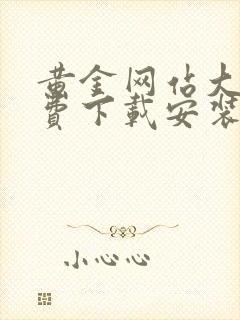 黄金网站大
费下载安装
小心心